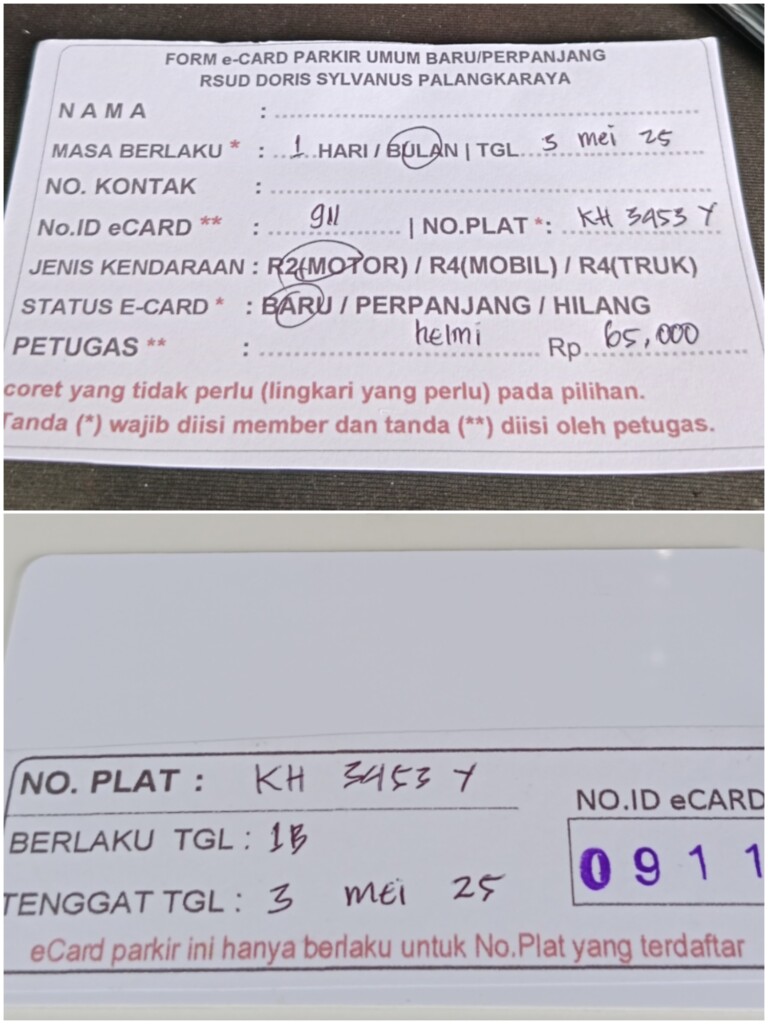 FORM e-CARD PARKIR UMUM BARU/PERPANJANG
RSUD DORIS SYLVANUS PALANGKARAYA
NAMA :
MASA BERLAKU * : 1 HARI / BULAN | TGL 3 mei 25
NO. KONTAK :
No.ID eCARD ** : 911 | NO.PLAT *: KH 3453 Y
JENIS KENDARAAN : R2(MOTOR) / R4(MOBIL) / R4(TRUK)
STATUS E-CARD * : BARU / PERPANJANG / HILANG
PETUGAS ** : helmi Rp. 65,000
coret yang tidak perlu (lingkari yang perlu) pada pilihan.
Tanda (*) wajib diisi member dan tanda (**) diisi oleh petugas.
NO. PLAT : KH 3453 Y
NO.ID eCARD
BERLAKU TGL : 1B
0911
TENGGAT TGL : 3 mei 25
eCard parkir ini hanya berlaku untuk No.Plat yang terdaftar